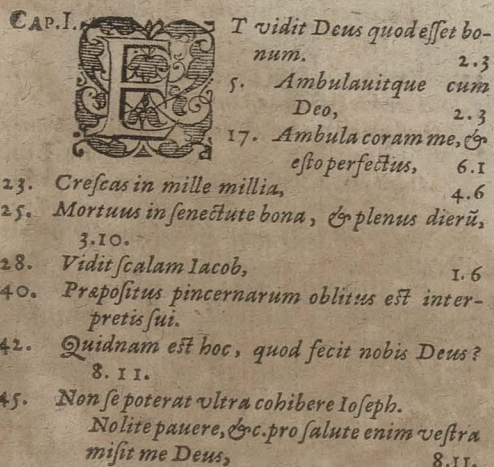 CAP. I. ET vidit Deus quod eſſet bo-
num. 2.3
5. Ambulauitque cum
Deo, 2.3
17. Ambula coram me, &
eſto perfectus, 6.1
23. Creſcas in mille millia, 4.6
25. Mortuus in ſenectute bona, & plenus dierũ,
3.10.
28. Vidit ſcalam Iacob, 1.6
40. Præpoſitus pincernarum oblitus eſt inter-
pretis ſui.
42. Quidnam eſt hoc, quod fecit nobis Deus?
8. 11.
45. Non ſe poterat vltra cohibere Ioſeph.
Nolite pauere, &c. pro ſalute enim veſtra
miſit me Deus, 8.11.